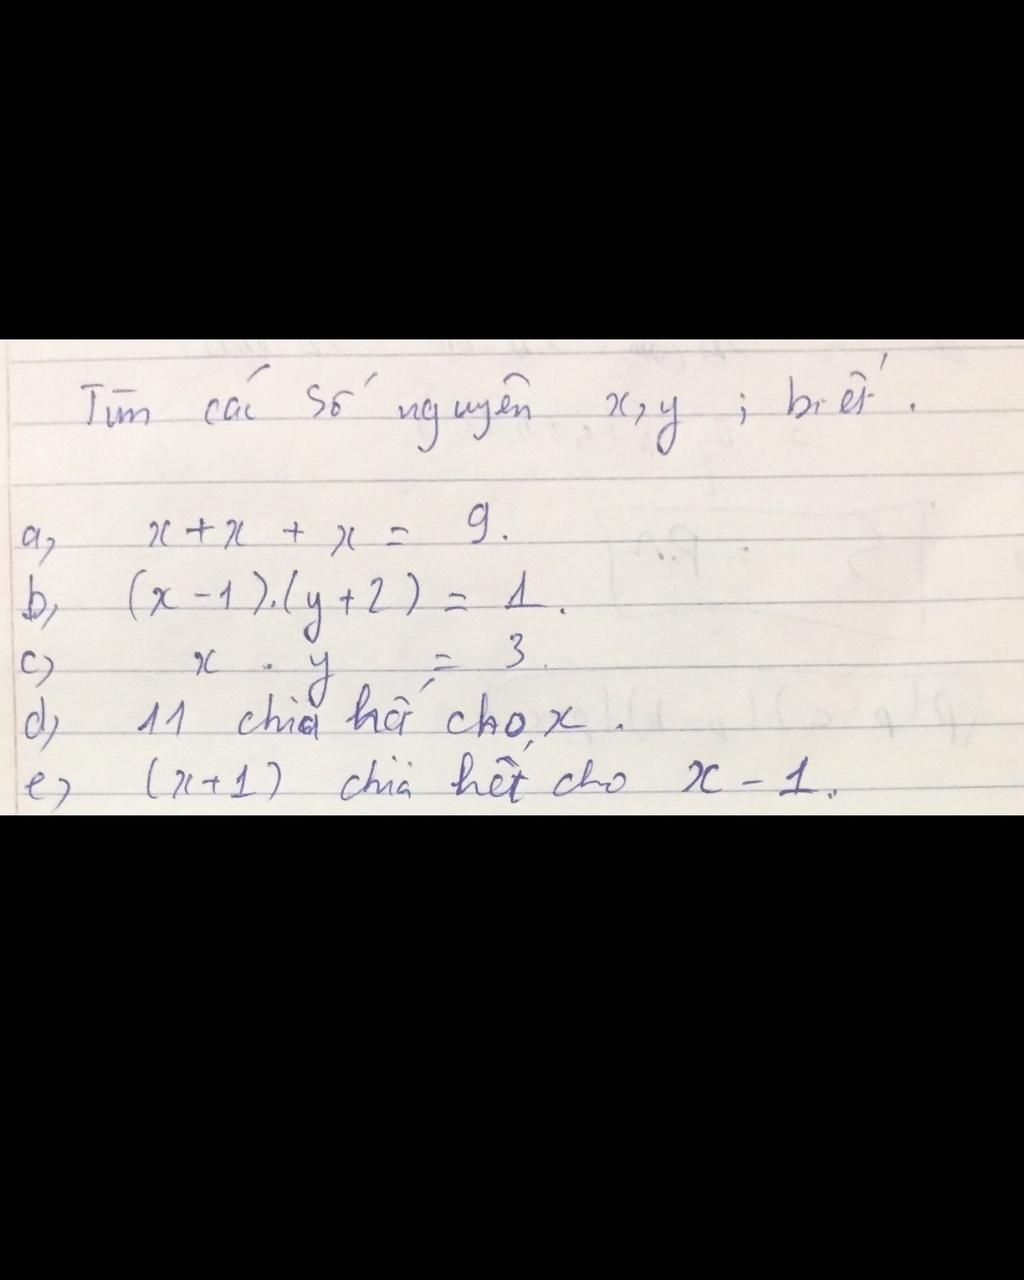 Tìm các số nguyên x,y ; biết.
a, x + x + x = 9.
b, (x - 1).(y + 2) = 1.
c, x . y = 3.
d, 11 chia hết cho x.
e, (x + 1) chia hết cho x - 1.